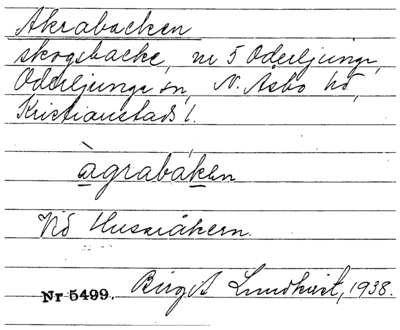 Akrabacken
skogsbacke, nr 5 Oderljunga,
Oderljunga sn, N. Åsbo hd,
Kristianstads l.
àgrabáken
Vid Husaråkern.
Nr 5499. Birgit Lundkvist, 1938.